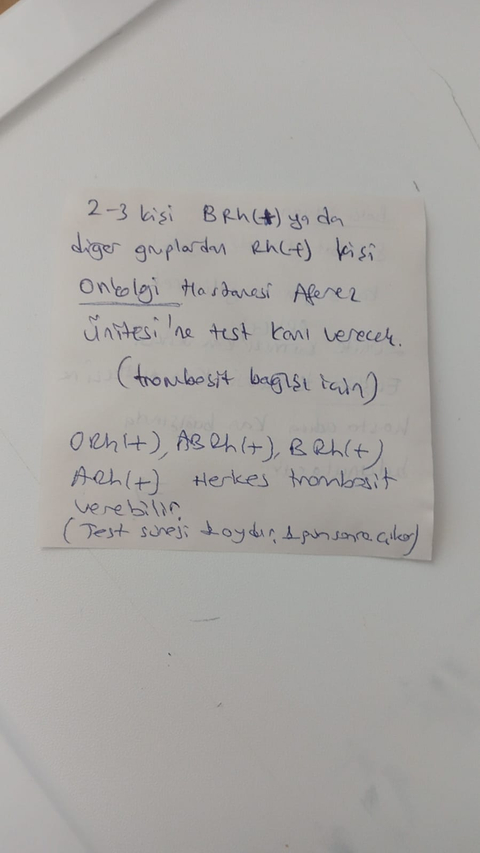 2-3 kişi BRh(+) ya da
diğer gruplardan Rh(+) kişi
Onkolgi Hastanesi Aferez
Ünitesi'ne test kanı verecek.
(trombosit bağışı için)
ORh(+), ABRh(+), BRh(+)
ARh(+) Herkes trombosit
verebilir.
(Test süresi 1 aydır, 1 gün sonra çıkar)